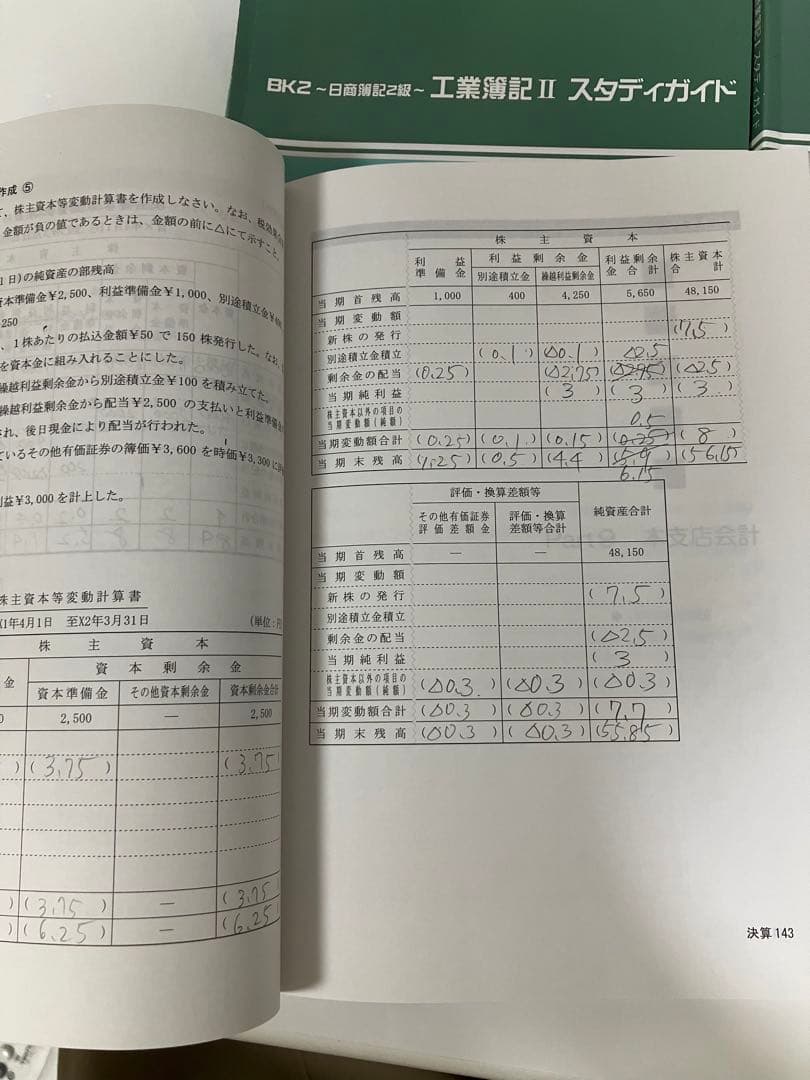 BK2 ～日商簿記2級～ 工業簿記Ⅱ スタディガイド
作成 ⑤
て、株主資本等変動計算書を作成しなさい。なお、税効果会
金額が負の値であるときは、金額の前に△にて示すこと。
1日)の純資産の部残高
資本準備金¥2,500、利益準備金¥1,000、別途積立金¥400
250
、1株あたりの払込金額¥50で150株発行した。なお、
を資本金に組み入れることにした。
繰越利益剰余金から別途積立金¥100を積み立てた。
繰越利益剰余金から配当¥2,500の支払いと利益準備金
され、後日現金により配当が行われた。
ているその他有価証券の簿価¥3,600を時価¥3,300に評
利益¥3,000を計上した。
株主資本等変動計算書
X1年4月1日 至X2年3月31日 (単位:円
株 主 資 本
金 資 本 剰 余 金
資本準備金 その他資本剰余金 資本剰余金合計
0 2,500 ― 2,500
) (3.75) (3.75)
) (3.75) ― (3.75)
) (6.25) ― (6.25)
株 主 資 本
利益準備金 利益剰余金 利益剰余金合計 株主資本合計
別途積立金 繰越利益剰余金
当期首残高 1,000 400 4,250 5,650 48,150
当期変動額
新株の発行 (7.5)
別途積立金積立 (0.1) (△0.1) △2.5
剰余金の配当 (0.25) (△2.75) (△2.75) (△2.5)
当期純利益 (3) (3) (3)
株主資本以外の項目の当期変動額(純額)
0.5
当期変動額合計 (0.25) (0.1) (0.15) (0.25) (8)
当期末残高 (1.25) (0.5) (4.4) (5.9) (56.15)
6.15
評価・換算差額等 純資産合計
その他有価証券評価差額金 評価・換算差額等合計
当期首残高 ― ― 48,150
当期変動額
新株の発行 (7.5)
別途積立金積立
剰余金の配当 (△2.5)
当期純利益 (3)
株主資本以外の項目の当期変動額(純額) (△0.3) (△0.3) (△0.3)
当期変動額合計 (△0.3) (△0.3) (7.7)
当期末残高 (△0.3) (△0.3) (55.85)
決算 143